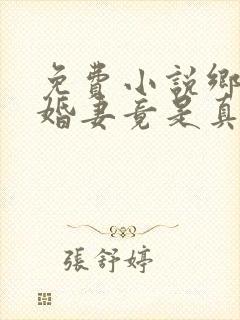 免費小說鄉
婚妻竟是真
張舒婷